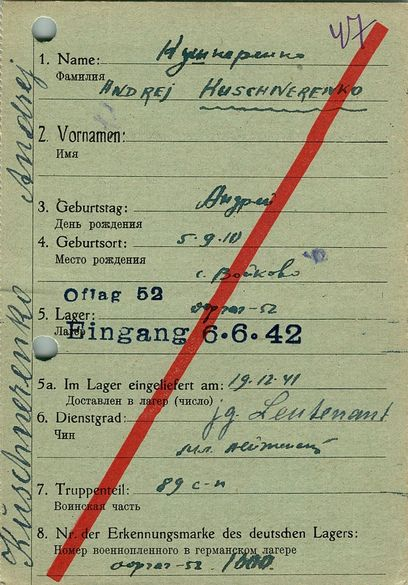 47
1. Name: Кушнеренко
Фамилия
ANDREJ KUSCHNERENKO
2. Vornamen:
Имя
3. Geburtstag: Андрей
День рождения
4. Geburtsort: 5.9.10
Место рождения
с. Войково
Oflag 52
5. Lager: офлаг-52
Лагерь
Eingang 6.6.42
5a. Im Lager eingeliefert am: 19.12.41
Доставлен в лагер (число)
6. Dienstgrad: jg Leutenant
Чин
мл. лейтенант
7. Truppenteil: 89 с-п
Воинская часть
8. Nr. der Erkennungsmarke des deutschen Lagers:
Номер военнопленного в германском лагере
офлаг-52 1600
Kuschnerenko Andrej